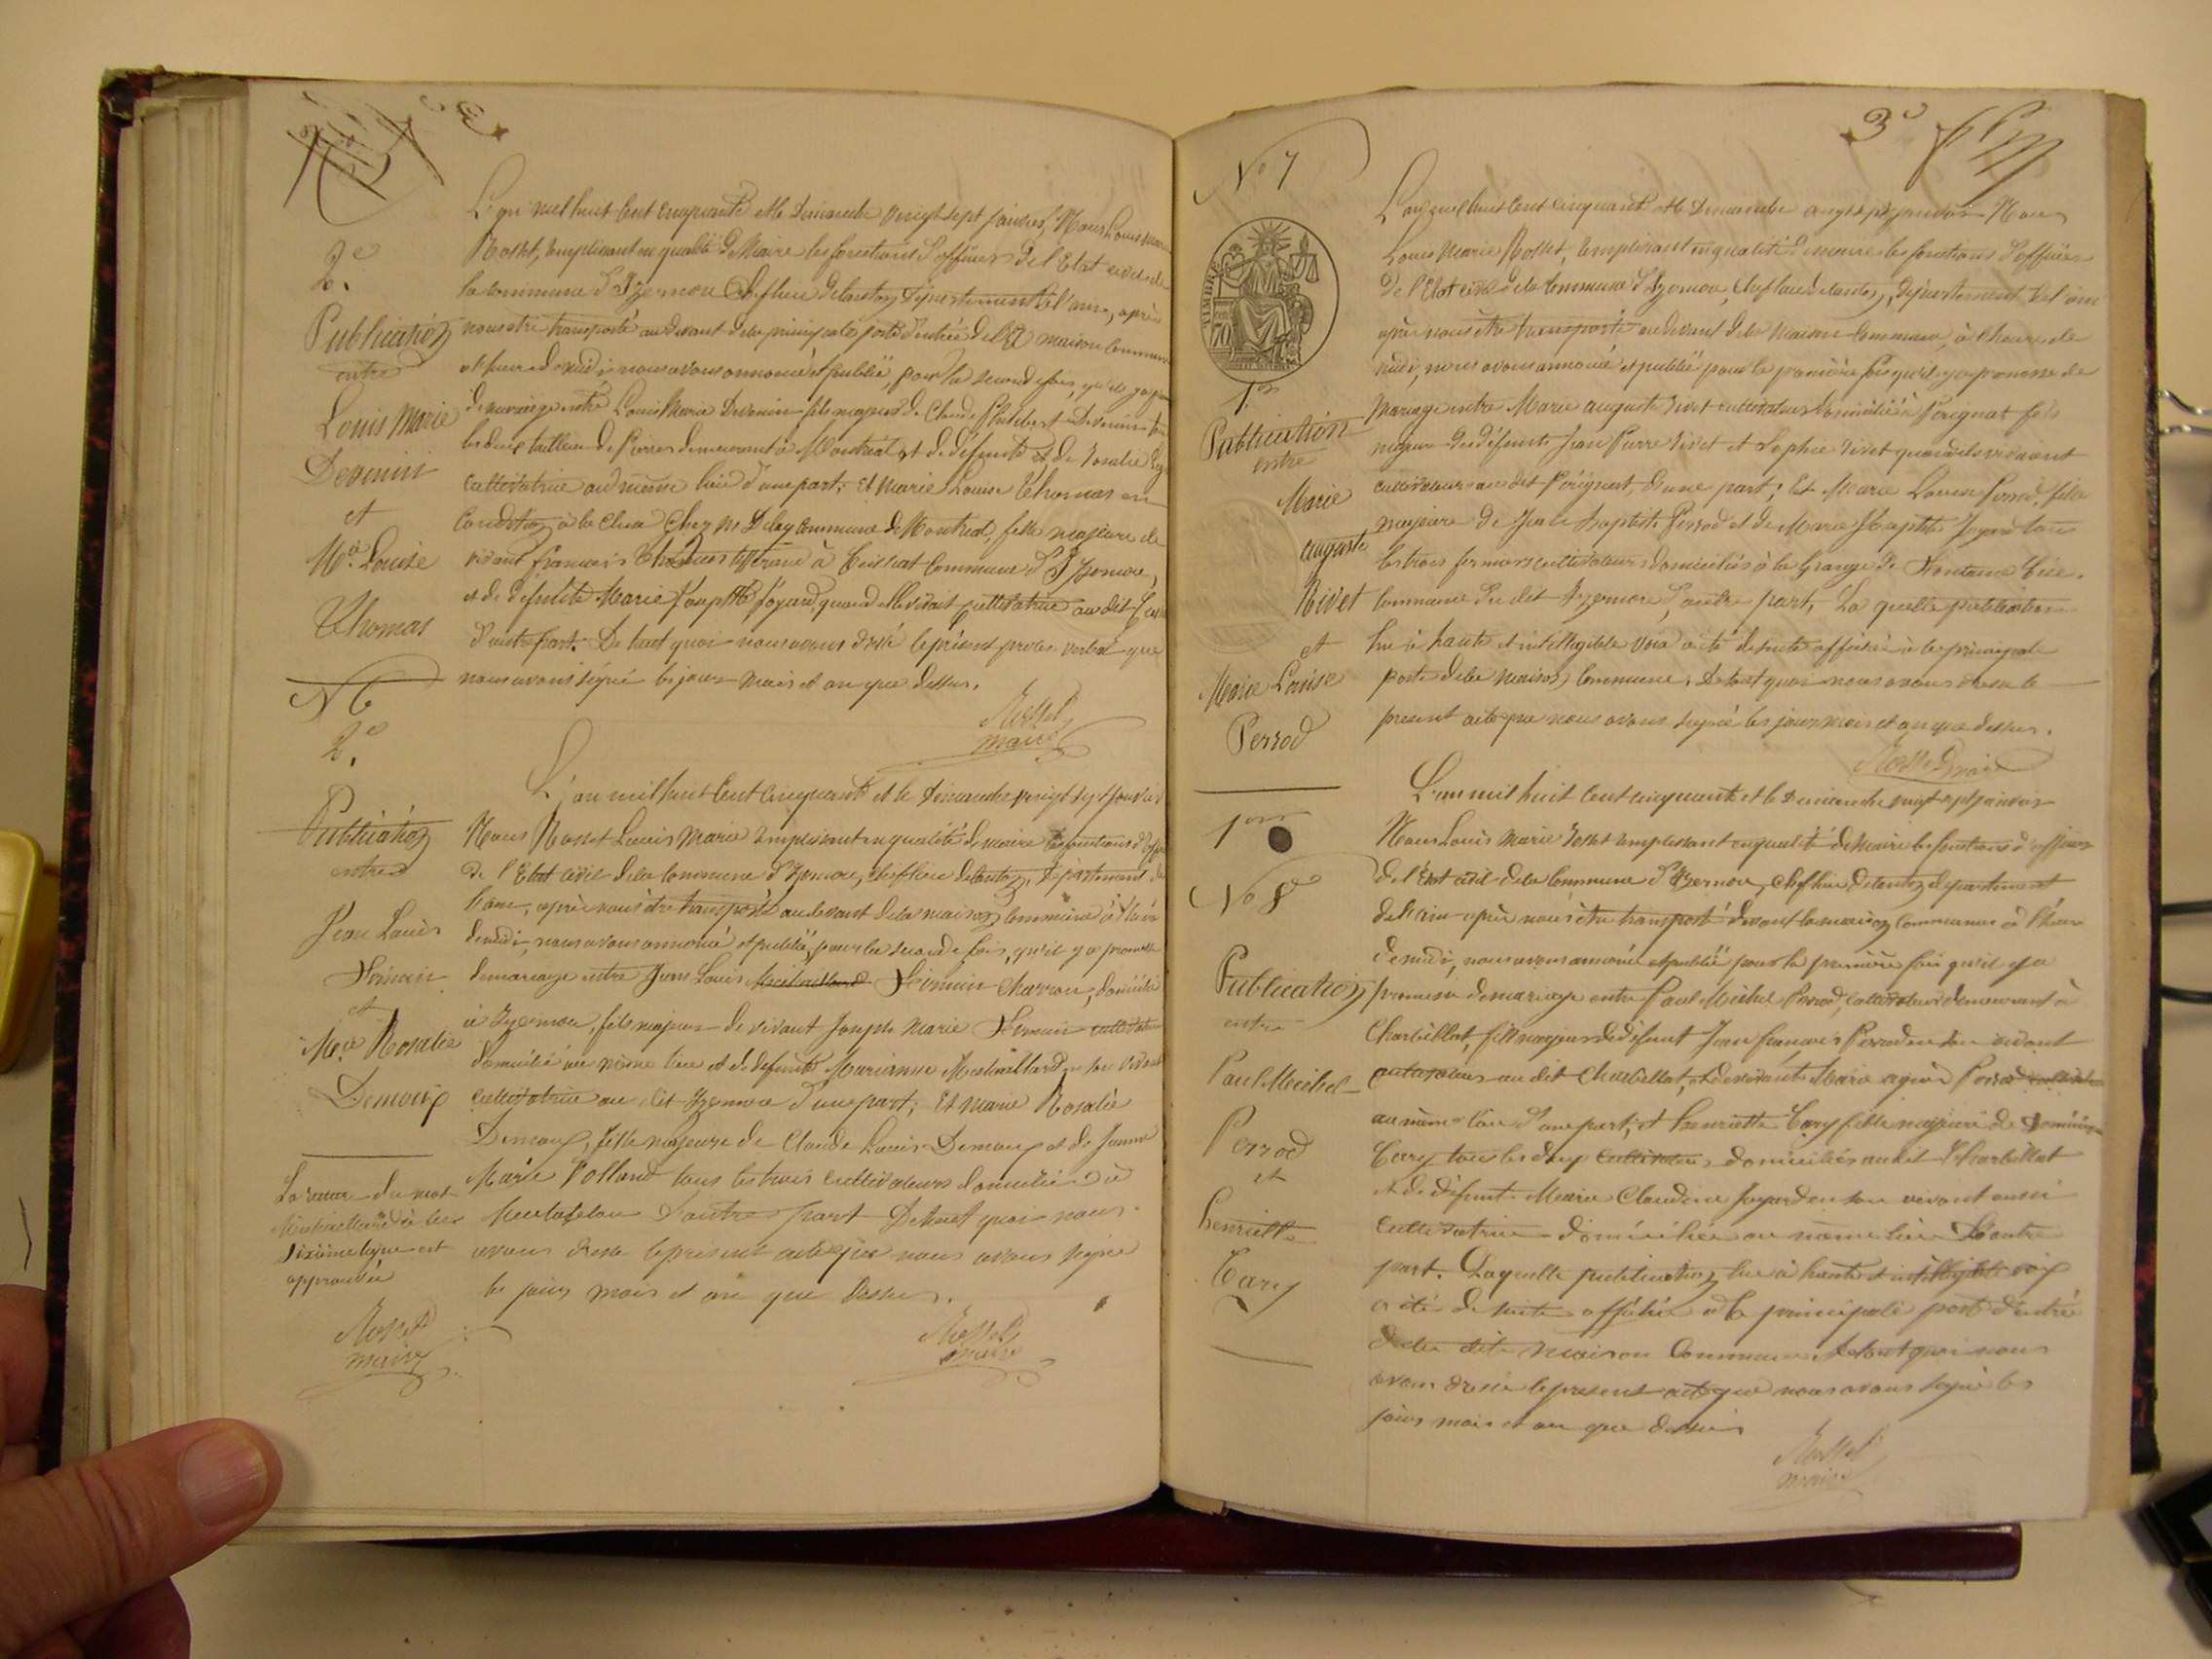 3e
2e
Publication
entre
Louis Marie
Devenin
et
Mie Louise
Thomas
L'an mil huit cent cinquante et le Dimanche vingt sept janvier, Nous Louis Marie
Rosset, remplissant en qualité de Maire les fonctions d'officier de l'Etat civil de
la commune d'Izernore Chef lieu de canton, Département de l'ain, après
nous être transporté au devant de la principale porte d'entrée de la maison commune
à l'heure de midi, nous avons annoncé et publié, pour la seconde fois, qu'il y a
de mariage entre Louis Marie Devenin fils majeur de Claude Philibert Devenin
les deux tailleur de Pierres demeurant à Montréal et de défunte de Rosalie
cultivatrice au même lieu d'une part; Et Marie Louise Thomas en
condition à la Chez Mr Delay commune de Montréal, fille majeure de
vivant françois Thomas à Ceissiat commune d'Izernore,
et de défunte Marie Josephte Joyard, quand elle vivait cultivatrice au dit
d'autre part. De tout quoi nous avons dressé le présent procès verbal que
nous avons signé les jour mois et an que dessus.
Rosset
maire
N 6
2e
Publication
entre
Jean Louis
et
Mie Rosalie
L'an mil huit cent cinquante et le Dimanche vingt sept Janvier
Nous Rosset Louis Marie remplissant en qualité de maire les fonctions d'
de l'Etat civil de la commune d'Izernore, chef lieu de canton, Département de
l'ain, après nous être transporté au devant de la maison commune à l'heure
de midi, nous avons annoncé et publié, pour la seconde fois, qu'il y a promesse
de mariage entre Jean Louis charron, domicilié
à Izernore, fils majeur de vivant Joseph Marie cultivateur
domicilié au même lieu et de défunte Marianne en son vivant
cultivatrice au dit Izernore d'une part; Et Marie Rosalie
fille majeure de Claude Louis et de Jeanne
Marie Volland tous les trois cultivateurs domiciliés à
d'autre part De tout quoi nous
avons dressé le présent acte que nous avons signé
les jour mois et an que dessus.
Rosset
maire
La rature du mot
à la
sixième ligne est
approuvée
Rosset
maire
3e
No 7
TIMBRE
70
1ère
Publication
entre
Marie
auguste
Rivet
et
Marie Louise
Perrod
L'an mil huit cent cinquante et le Dimanche vingt sept janvier Nous
Louis Marie Rosset, remplissant en qualité de maire les fonctions d'officier
de l'Etat civil de la commune d'Izernore, chef lieu de canton, département de l'ain
après nous être transporté au devant de la maison commune, à l'heure de
midi, nous avons annoncé et publié pour la première fois qu'il y a promesse de
mariage entre Marie auguste Rivet cultivateur domicilié à Pérignat fils
majeur des défunts Jean Pierre Rivet et Sophie Rivet quand ils vivaient
cultivateurs au dit Pérignat, d'une part; Et Marie Louise Perrod, fille
majeure de Jean Baptiste Perrod et de Marie Josephte Joyard tous
les trois fermiers cultivateurs domiciliés à la Grange de
commune du dit Izernore d'autre part, La quelle publication
lue à haute et intelligible voix a été de suite affichée à la principale
porte de la maison commune. De tout quoi nous avons dressé le
présent acte que nous avons signé les jour mois et an que dessus.
Rosset maire
1ère
No 8
Publication
entre
Paul Michel
Perrod
et
henriette
Cary
L'an mil huit cent cinquante et le Dimanche vingt sept janvier
Nous Louis Marie Rosset remplissant en qualité de Maire les fonctions d'officier
de l'Etat civil de la commune d'Izernore, chef lieu de canton, département
de l'ain après nous être transporté devant la maison commune à l'heure
de midi, nous avons annoncé et publié pour la première fois qu'il y a
promesse de mariage entre Paul Michel Perrod, cultivateur demeurant à
Charbillat, fils majeur de défunt Jean françois Perrod en son vivant
cultivateur au dit Charbillat, et de vivante Marie Perrod cultivatrice
au même lieu d'une part; et henriette Cary fille majeure de
Cary tous les deux cultivateurs domiciliés au dit Charbillat
et de défunte Marie Claudine Joyard en son vivant aussi
cultivatrice domiciliée au même lieu D'autre
part. Laquelle publication, lue à haute et intelligible voix
a été de suite affichée à la principale porte d'entrée
de la dite maison commune. De tout quoi nous
avons dressé le présent acte que nous avons signé les
jour mois et an que dessus
Rosset
maire